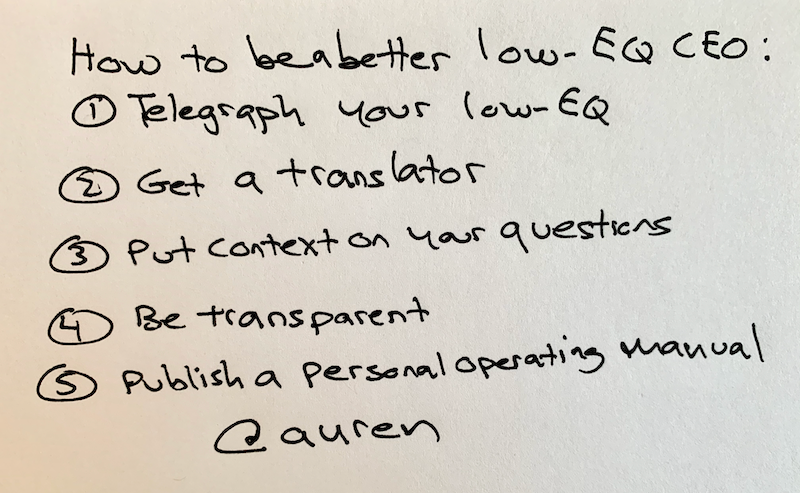 How to be a better low-EQ CEO:
① Telegraph your low-EQ
② Get a translator
③ Put context on your questions
④ Be transparent
⑤ Publish a personal operating manual
@auren